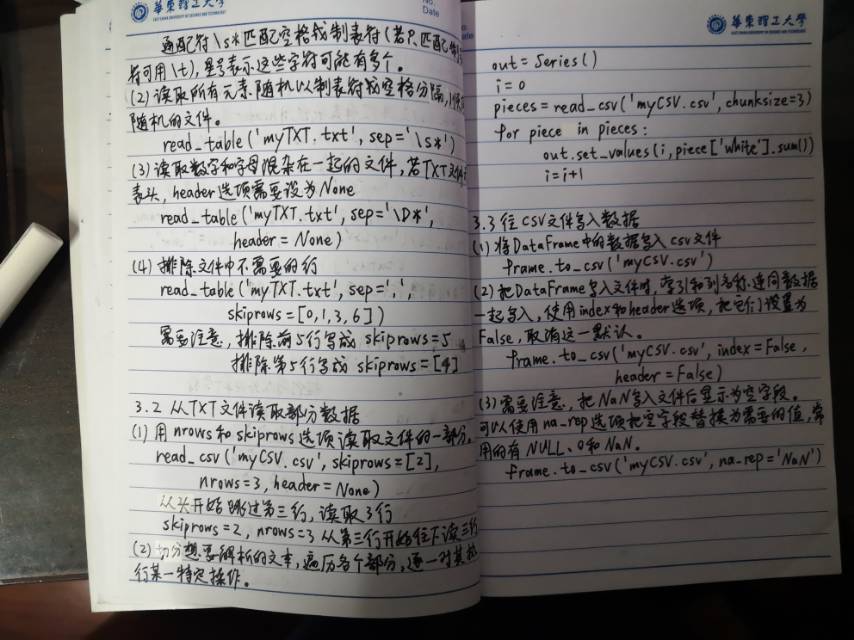 華東理工大學
No.
Date
通配符\s*匹配空格或制表符(若只匹配制
符可用\t),星号表示这些字符可能有多个。
(2)读取所有元素随机以制表符或空格分隔,
随机的文件。
read_table('myTXT.txt', sep='\s*')
(3)读取数字和字母混杂在一起的文件,若TXT文件
表头,header选项需要设为None
read_table('myTXT.txt', sep='\D*',
header = None)
(4)排除文件中不需要的行
read_table('myTXT.txt', sep=',',
skiprows = [0,1,3,6])
需要注意,排除前5行写成 skiprows=5
排除第5行写成 skiprows=[4]
3.2 从TXT文件读取部分数据
(1)用nrows和skiprows选项读取文件的一部分。
read_csv('myCSV.csv', skiprows=[2],
nrows=3, header=None)
从头开始跳过第三行,读取3行
skiprows=2, nrows=3 从第三行开始往下读三行
(2)切分想要解析的文本,遍历各个部分,逐一对其执
行某一特定操作。
華東理工大學
out = Series()
i=0
pieces = read_csv('myCSV.csv', chunksize=3)
for piece in pieces:
out.set_values(i,piece['white'].sum())
i=i+1
3.3 往CSV文件写入数据
(1)将DataFrame中的数据写入csv文件
frame.to_csv('myCSV.csv')
(2)把DataFrame写入文件时,索引和列名称连同数据
一起写入,使用index和header选项,把它们设置为
False,取消这一默认。
frame.to_csv('myCSV.csv', index=False,
header=False)
(3)需要注意,把NaN写入文件后显示为空字段。
可以使用na_rep选项把空字段替换为需要的值,常
用的有NULL、0和NaN。
frame.to_csv('myCSV.csv', na_rep='NaN')